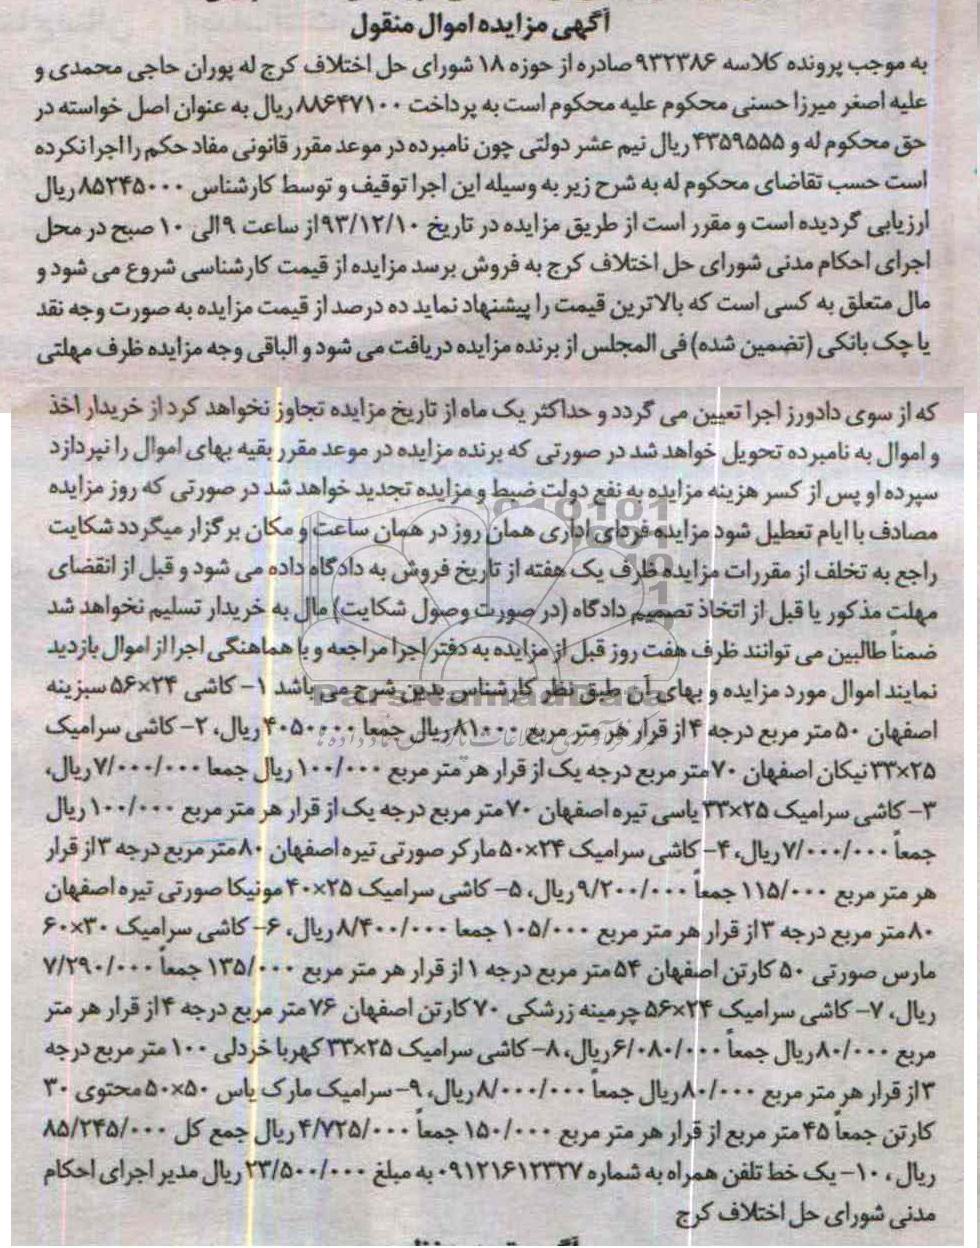 آگهی مزایده اموال منقول
به موجب پرونده کلاسه ۹۳۲۳۸۶ صادره از حوزه ۱۸ شورای حل اختلاف کرج له پوران حاجی محمدی و
علیه اصغر میرزا حسنی محکوم علیه محکوم است به پرداخت ۸۸۶۴۷۱۰۰ ریال به عنوان اصل خواسته در
حق محکوم له و ۴۳۵۹۵۵۵ ریال نیم عشر دولتی چون نامبرده در موعد مقرر قانونی مفاد حکم را اجرا نکرده
است حسب تقاضای محکوم له به شرح زیر به وسیله این اجرا توقیف و توسط کارشناس ۸۵۲۴۵۰۰۰ ریال
ارزیابی گردیده است و مقرر است از طریق مزایده در تاریخ ۹۳/۱۲/۱۰ از ساعت ۹ الی ۱۰ صبح در محل
اجرای احکام مدنی شورای حل اختلاف کرج به فروش برسد مزایده از قیمت کارشناسی شروع می شود و
مال متعلق به کسی است که بالاترین قیمت را پیشنهاد نماید ده درصد از قیمت مزایده به صورت وجه نقد
یا چک بانکی (تضمین شده) فی المجلس از برنده مزایده دریافت می شود و الباقی وجه مزایده ظرف مهلتی
که از سوی دادورز اجرا تعیین می گردد و حداکثر یک ماه از تاریخ مزایده تجاوز نخواهد کرد از خریدار اخذ
و اموال به نامبرده تحویل خواهد شد در صورتی که برنده مزایده در موعد مقرر بقیه بهای اموال را نپردازد
سپرده او پس از کسر هزینه مزایده به نفع دولت ضبط و مزایده تجدید خواهد شد در صورتی که روز مزایده
مصادف با ایام تعطیل شود مزایده فردای اداری همان روز در همان ساعت و مکان برگزار میگردد شکایت
راجع به تخلف از مقررات مزایده ظرف یک هفته از تاریخ فروش به دادگاه داده می شود و قبل از انقضای
مهلت مذکور یا قبل از اتخاذ تصمیم دادگاه (در صورت وصول شکایت) مال به خریدار تسلیم نخواهد شد
ضمناً طالبین می توانند ظرف هفت روز قبل از مزایده به دفتر اجرا مراجعه و با هماهنگی اجرا از اموال بازدید
نمایند اموال مورد مزایده و بهای آن طبق نظر کارشناس بدین شرح می باشد ۱- کاشی ۲۴×۵۶ سبزینه
اصفهان ۵۰ متر مربع درجه ۴ از قرار هر متر مربع ۸۱۰۰۰ ریال جمعا ۴۰۵۰۰۰۰ ریال، ۲- کاشی سرامیک
۲۵×۳۳ نیکان اصفهان ۷۰ متر مربع درجه یک از قرار هر متر مربع ۱۰۰/۰۰۰ ریال جمعا ۷/۰۰۰/۰۰۰ ریال،
۳- کاشی سرامیک ۲۵×۳۳ یاسی تیره اصفهان ۷۰ متر مربع درجه یک از قرار هر متر مربع ۱۰۰/۰۰۰ ریال
جمعاً ۷/۰۰۰/۰۰۰ ریال، ۴- کاشی سرامیک ۲۴×۵۰ مارکر صورتی تیره اصفهان ۸۰ متر مربع درجه ۳ از قرار
هر متر مربع ۱۱۵/۰۰۰ جمعاً ۹/۲۰۰/۰۰۰ ریال، ۵- کاشی سرامیک ۲۵×۴۰ مونیکا صورتی تیره اصفهان
۸۰ متر مربع درجه ۳ از قرار هر متر مربع ۱۰۵/۰۰۰ جمعا ۸/۴۰۰/۰۰۰ ریال، ۶- کاشی سرامیک ۳۰×۶۰
مارس صورتی ۵۰ کارتن اصفهان ۵۴ متر مربع درجه ۱ از قرار هر متر مربع ۱۳۵/۰۰۰ جمعاً ۷/۲۹۰/۰۰۰
ریال، ۷- کاشی سرامیک ۲۴×۵۶ چرمینه زرشکی ۷۰ کارتن اصفهان ۷۶ متر مربع درجه ۴ از قرار هر متر
مربع ۸۰/۰۰۰ ریال جمعاً ۶/۰۸۰/۰۰۰ ریال، ۸- کاشی سرامیک ۲۵×۳۳ کهربا خردلی ۱۰۰ متر مربع درجه
۳ از قرار هر متر مربع ۸۰/۰۰۰ ریال جمعاً ۸/۰۰۰/۰۰۰ ریال، ۹- سرامیک مارک یاس ۵۰×۵۰ محتوی ۳۰
کارتن جمعاً ۴۵ متر مربع از قرار هر متر مربع ۱۵۰/۰۰۰ جمعاً ۴/۷۲۵/۰۰۰ ریال جمع کل ۸۵/۲۴۵/۰۰۰
ریال، ۱۰- یک خط تلفن همراه به شماره ۰۹۱۲۱۶۱۲۳۲۷ به مبلغ ۲۳/۵۰۰/۰۰۰ ریال مدیر اجرای احکام
مدنی شورای حل اختلاف کرج
ParsNamadData